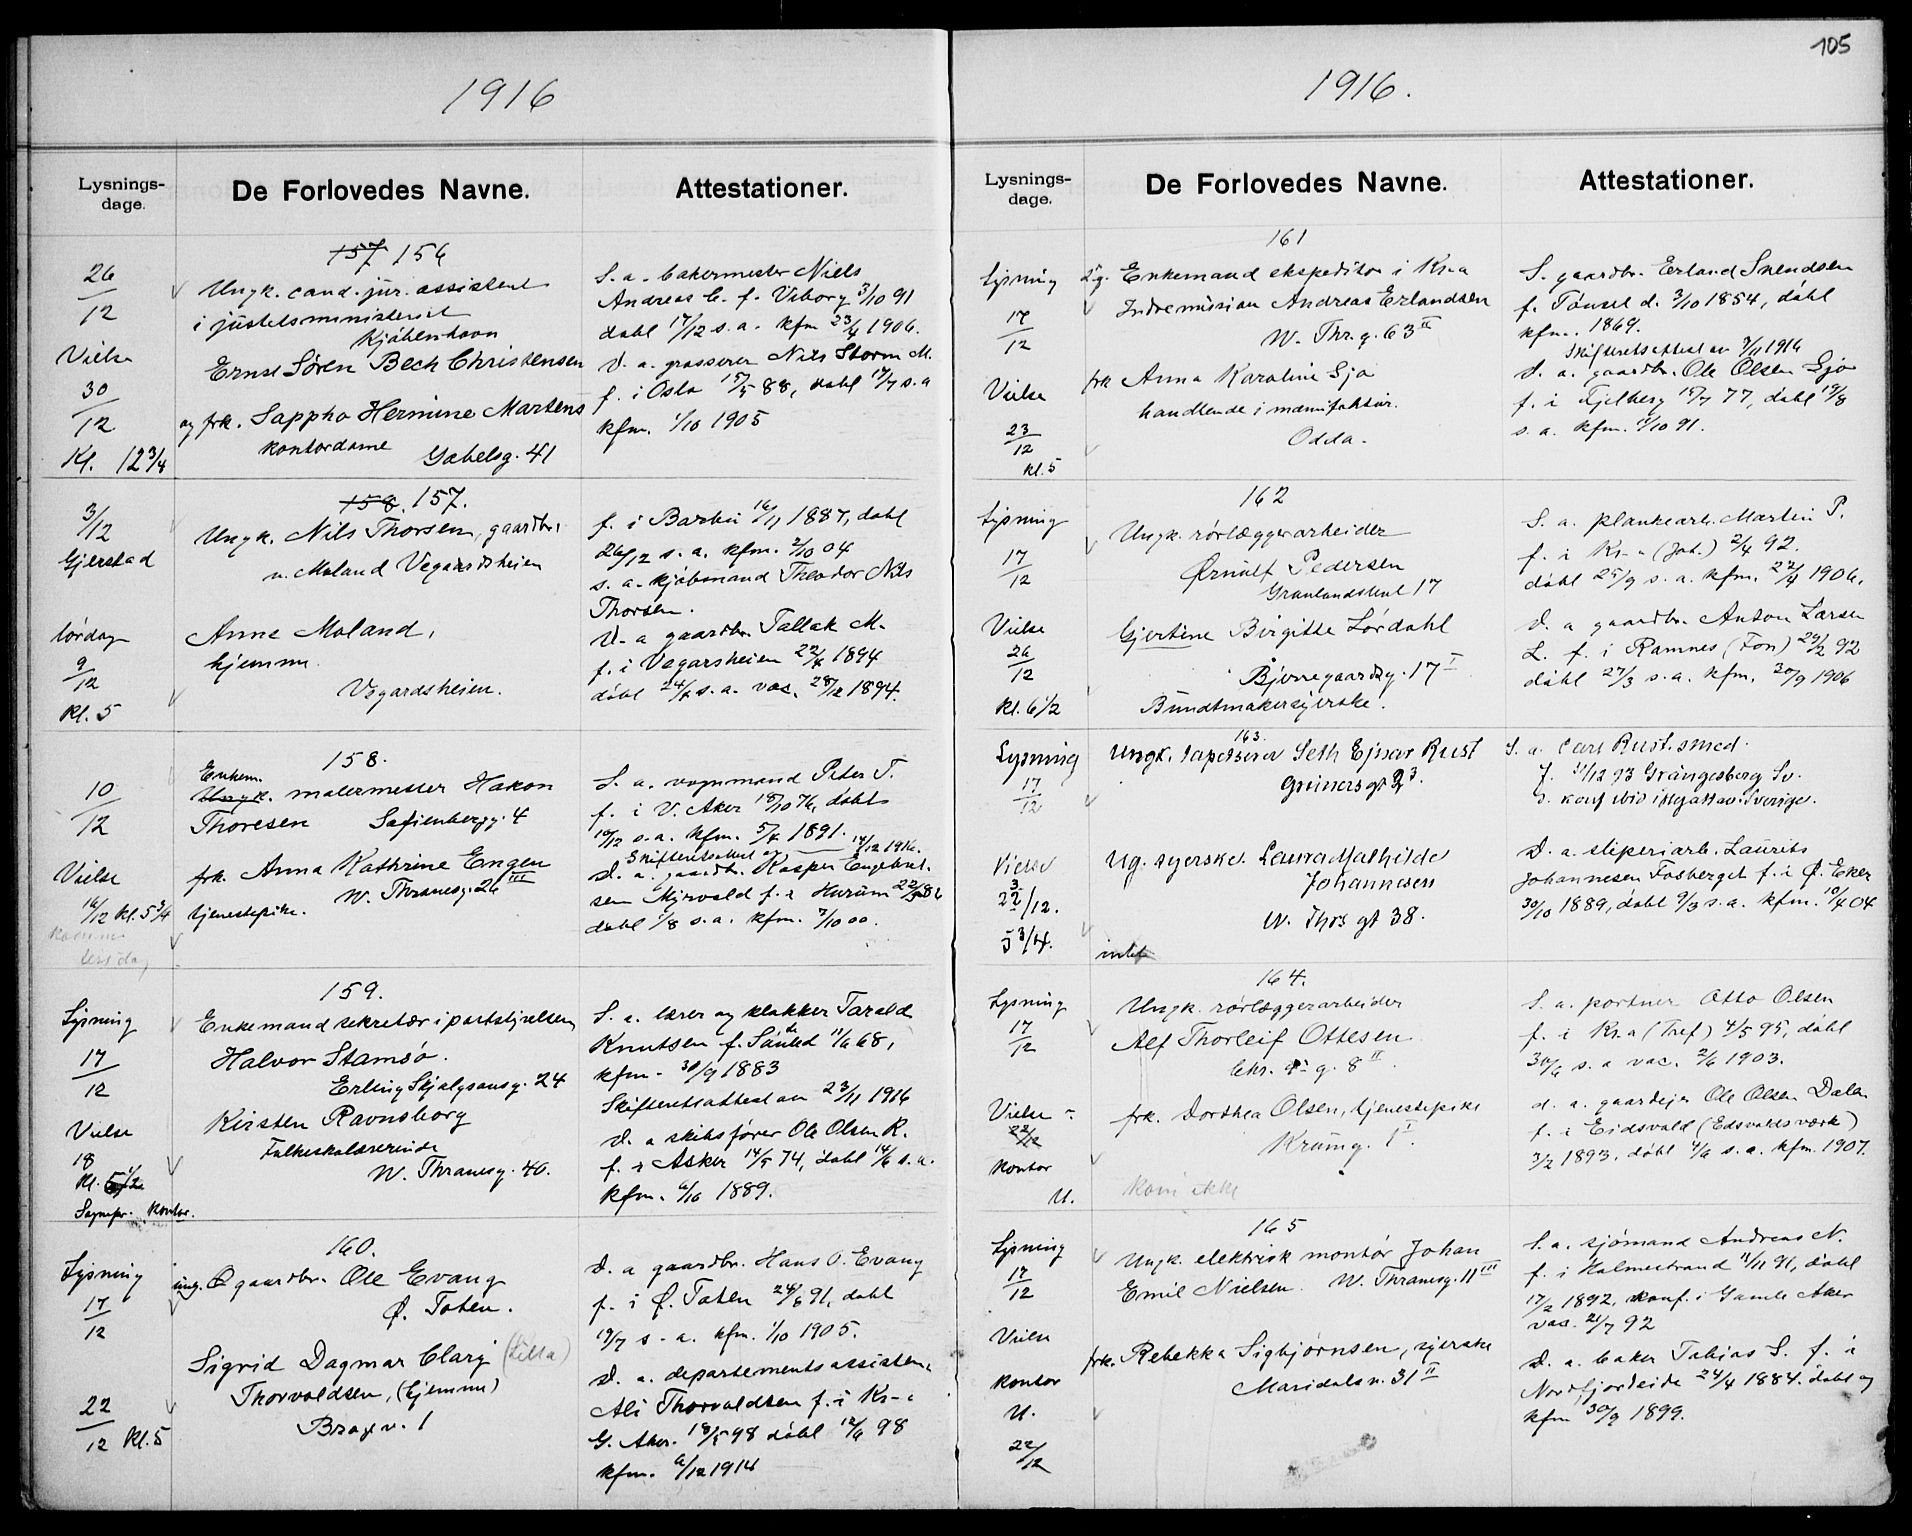 105
1916
Lysnings-
dage.
De Forlovedes Navne.
Attestationer.
157 156
26
12
Vielse
30
12
Kl. 12 3/4
Ungk. cand. jur. assistent
i justitsministeriet
Kjøbenhavn
Ernst Søren Bech Christensen
og frk. Sappho Hermine Martens
kontordame Gabelsg. 41
S. a. bakermester Niels
Andreas C. f. Viborg 3/10 91
døbt 17/12 s. a. kfm 23/4 1906.
D. a. grosserer Nils Storm M.
f. i Oslo 15/5 88, døbt 17/7 s. a
kfm. 1/10 1905
158. 157.
3/12
Gjerstad
lørdag
9
12
kl. 5
Ungk. Nils Thorsen, gaardbr.
n. Moland Vegardsheien
Anne Moland,
hjemme.
Vegardsheien.
f. i Barbu 16/11 1887, døbt
26/12 s. a. kfm. 2/10 04
s. a. kjøbmand Theodor Nils
Thorsen.
D. a gaardbr. Tallak M.
f. i Vegarsheien 22/4 1894
døbt 24/6 s. a. vac. 28/12 1894.
158.
10
12
Vielse
16/12 kl. 5 3/4
Enkem.
Ungk. malermester Hakon
Thoresen Sofienbergg. 4
frk. Anna Kathrine Engen
W. Thranesg. 26 III
tjenestepike.
S. a. vognmand Peter T.
f. i V. Aker 18/10 76, døbt
10/12 s. a. kfm. 5/4 1891.
Skifteretsattest av 14/12 1916.
D. a. gaardbr. Kasper Engebret-
sen Myrvold f. i Hurum
døbt 1/8 s. a. kfm. 7/10 00.
159.
Lysning
17
12
Vielse
18
Kl. 6 1/2
Sognepr. kontor.
Enkemand sekretær i poststyrelsen
Halvor Stamsø.
Erling Skjalgsonsg. 24
Kirsten Ravnsborg
Folkeskolelærerinde
W. Thranesg. 40.
S. a. lærer og klokker Tarald
Knutsen f. 11/6 68,
kfm. 30/9 1883
Skifteretsattest av 23/11 1916
D. a skibsfører Ole Olsen R.
f. i Asker 14/5 74, døbt 14/6 s. a.
kfm. 6/10 1889.
160.
Lysning
17
12
22
12 kl. 5
ung. gaardbr. Ole Evang
Ø. Toten.
Sigrid Dagmar Clary (Lilla)
Thorvaldsen, (hjemme)
Bragev. 1
D. a gaardbr. Hans O. Evang
f. i Ø. Toten 24/6 91, døbt
19/7 s. a. kfm. 1/10 1905.
D. a. departementsassistent
Ali Thorvaldsen f. i Kr-a
G. Aker. 18/5 98 døbt 12/6 98
kfm. 6/12 1914
1916.
Lysnings-
dage.
De Forlovedes Navne.
Attestationer.
161
Lysning
17
12
Vielse
23
12
kl. 5
Enkemand ekspeditør i Kr.a
Indremission Andreas Erlandsen
W. Thr. g. 63 II
frk Anna Karoline Sjo
handlende i manufaktur.
Odda.
S. gaardbr. Erland Svendsen
f. Tønset d. 3/10 1854, døbt
kfm. 1869.
Skifteretsattest av 7/11 1916
D. a. gaardbr. Ole Olsen Sjo
f. i Fjelberg 15/7 77, døbt 19/8
s. a. kfm. 4/10 91.
162
Lysning
17
12
Vielse
26
12
kl. 6 1/2
Ungk. rørlæggerarbeider
Ørnulf Pedersen
Grønlandsleret 17
Gjertine Birgitte Lørdahl
Bjerregaardsg. 17 I
Bundtmakersyerske.
S. a. plankearb. Martin P.
f. i Kr-a (Joh.) 2/4 92.
døbt 25/9 s. a. kfm. 22/4 1906.
D. a gaardbr. Anton Larsen
L. f. i Ramnes (Fon) 29/2 92
døbt 27/3 s. a. kfm. 30/9 1906
163.
Lysning
17
12
Vielse
22/12.
5 3/4.
Ungk. tapetserer Seth Ejnar Rust
Grünersgt 2 3.
Ug. syerske. Laura Mathilde
Johannesen
W. Thrs gt 38.
S. a. Carl Rust. smed.
f. 11/12 93 Grängesberg Sv.
D. a. sliperiarb. Laurits
Johannesen Fosberget f. i Ø. Eker
30/10 1889, døbt 9/3 s. a. kfm. 10/4 04
164.
Lysning
17
12
Vielse
22/12
kontor
U.
Ungk. rørlæggerarbeider
Alf Thorleif Ottesen
Chr. g. 8 II
frk. Dorthea Olsen, tjenestepike
Krumg. 1 I.
Kom ikke
S. a. portner Otto Olsen
f. i Kr.a (Tref) 4/5 95, døbt
30/6 s. a vac. 2/6 1903.
d. a. gaardejer Ole Olsen Dalen
f. i Eidsvold (Edsvoldsværk)
3/2 1893. døbt 4/6 s. a. kfm. 1907.
165
Lysning
17
12
Vielse
kontor
U.
22/12
Ungk. elektrisk montør Johan
Emil Nielsen. W. Thranesg. 11 III
frk. Rebekka Sigbjørnsen, syerske
Maridalsv. 31 II
S. a. sjømand Andreas N.
f. i Holmestrand 11/11 91, døbt
17/2 1892, konf. i Gamle Aker
vac. 21/7 92
D. a. baker Tobias S. f. i
Nordfjordeide 24/4 1884. døbt og
kfm 30/9 1899.